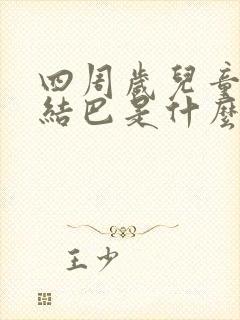 四周歲兒童
結巴是什麼
王少